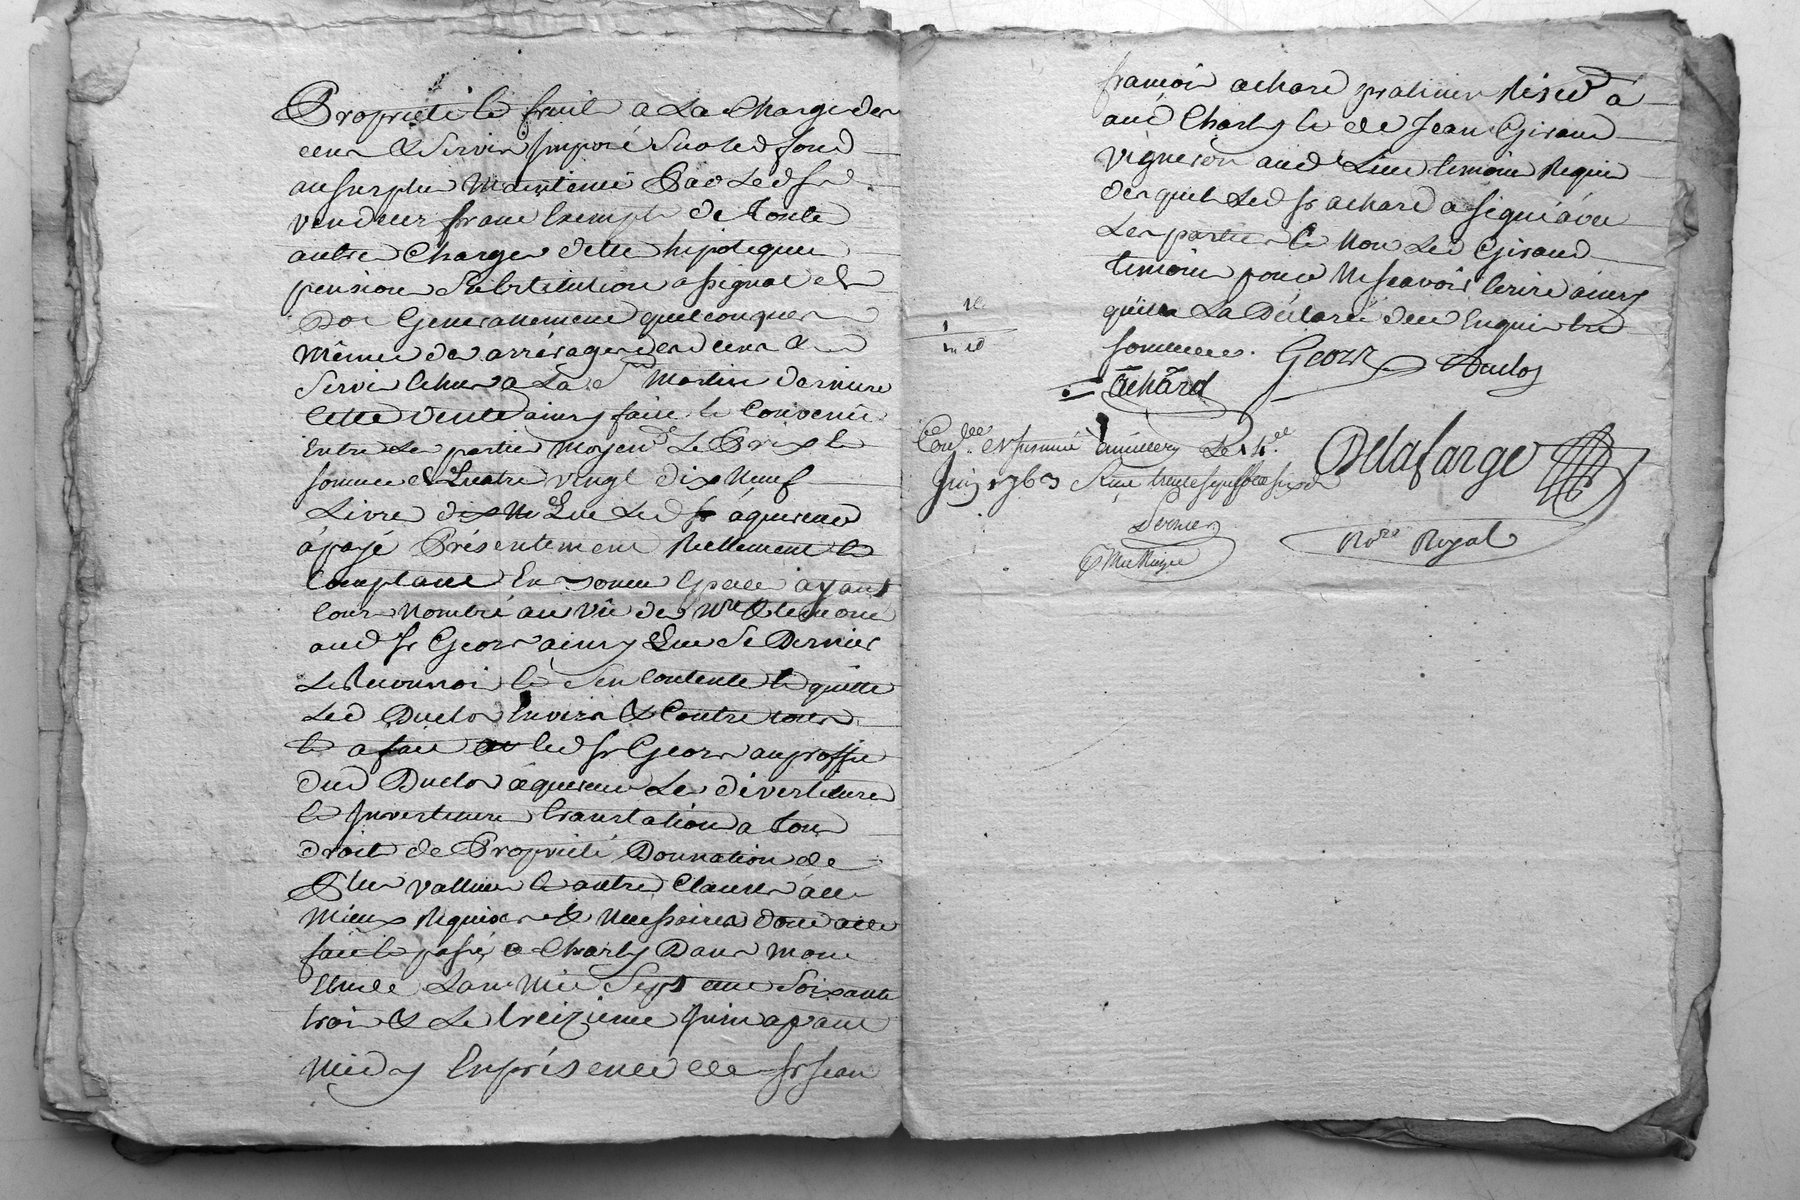 Proprieté le fruit a La Charge des
cens & Servis Imposé Sur led fond
au surplus Maintenu Par Led Sr
vendeur franc Exempt de Toute
autre Charges dette hipoteque
pension Substitution assignat et
Generallement quelconques
Même de arrérages des d cens &
Servis échus a La St Martin derniere
Cette vente ainsy faite Et Convenüe
Entre Les parties moyent Le Prix Et
somme de Quatre vingt dix Neuf
Livre Que Led Sr aquereur
a payé Présentement Réellement Et
Comptant En Espece ayant
Cour Nombré au Vüe des Nre & témoins
aud Sr Geors ainsy Que Ce Dernier
Le Reconnoit Et S'en Contente Et quitte
Led Duclos Envers & Contre tous
Et a fait led Sr Geors au proffit
dud Duclos aquereur Les divestiture
Et Investiture translation a tous
droit de Proprieté Donnation de
Plus vallue Et autre Clauses au
Mieux Requises & Necessaires dont acte
fait Et passé a Charly Dans mon
Etude L'an Mil Sept cent Soixante
trois & Le treizieme Juin avant
Midy En présence de Sr Jean
françois achard praticien a
aud Charly Et de Jean Giraud
vigneron aud Lieu temoins Requis
desquels Led Sr achard a signé avec
Les parties Et Non Led Giraud
temoin pour Ne scavoir Ecrire ainsy
qu'il La Déclaré de ce Enquis Et
sommé. Geors Duclos
Achard
Conlé et Insinué a Le 14.
Juin 1763 Reçu trente sept sols six d
Delafarge
Nore Royal